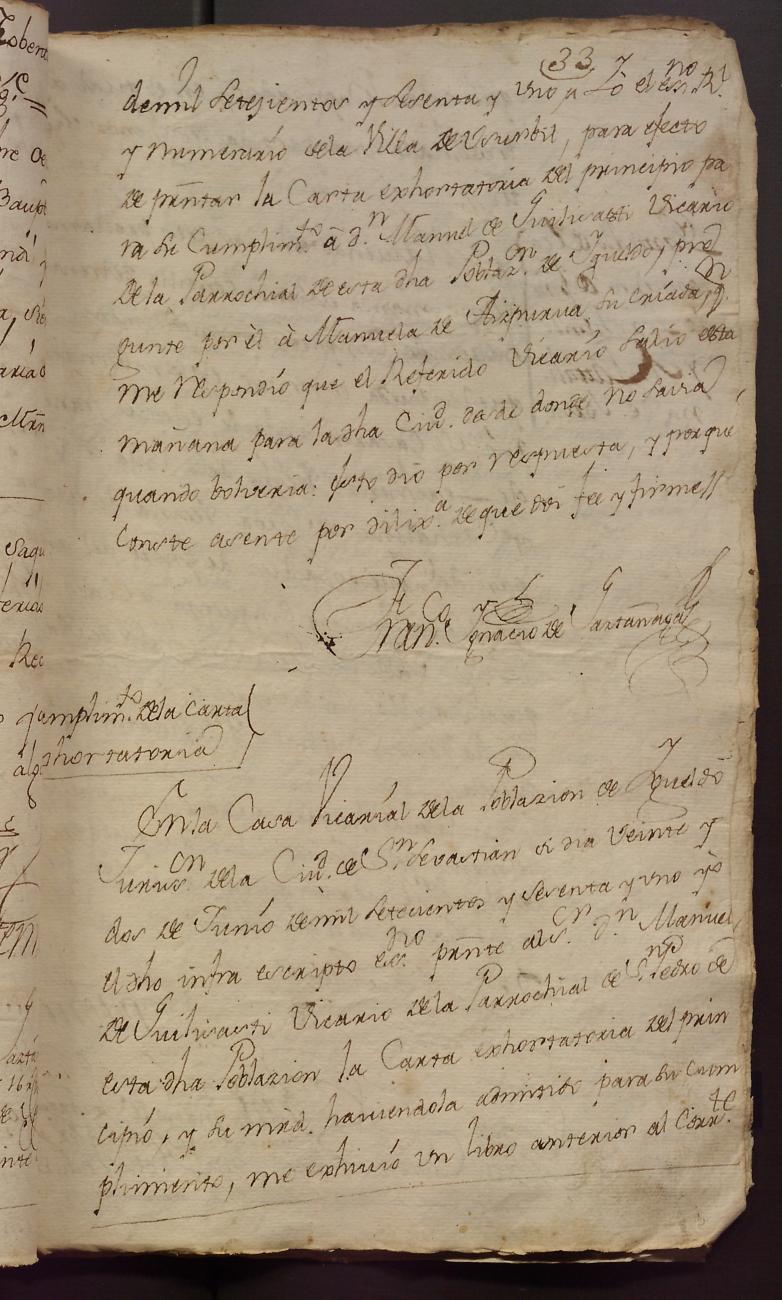 33
demil setezientos y sesenta y uno yo el esno. Rl.
y numerario dela Villa de Usurbil, para efecto
de prntar la Carta exhortatoria del principio pa
ra su Cumplimto. â dn. Manuel de Vicario
dela Parrochial de esta dha Poblazon. de Igueldo, pre
gunte por èl â Manuela de Aizpurua su criada, q.
me respondió que el Referido Vicario salio esta
mañana para la dha Ciud. de donde no savia
quando bolveria: esto dio por respuesta, y porque
Conste asente por dilixa. de que doi fee y firme
Franco. Ygnacio de
Cumplimto. dela Carta
exhortatoria
En la Casa Vicarial dela Poblazion de Igueldo
Jurison. dela Ciud. de Sn. Sevastian â dia Veinte y
dos de Junio demil setecientos y sesenta y uno yo
el dho infra escripto esno. prnte al Sr. dn. Manuel
de Vicario dela Parrochial de Sn. Pedro de
esta dha Poblazion la Carta exhortatoria del prin
cipio, y su mrd. haviendola admitido para su cum
plimiento, me exhivió un libro anterior al Corrte.